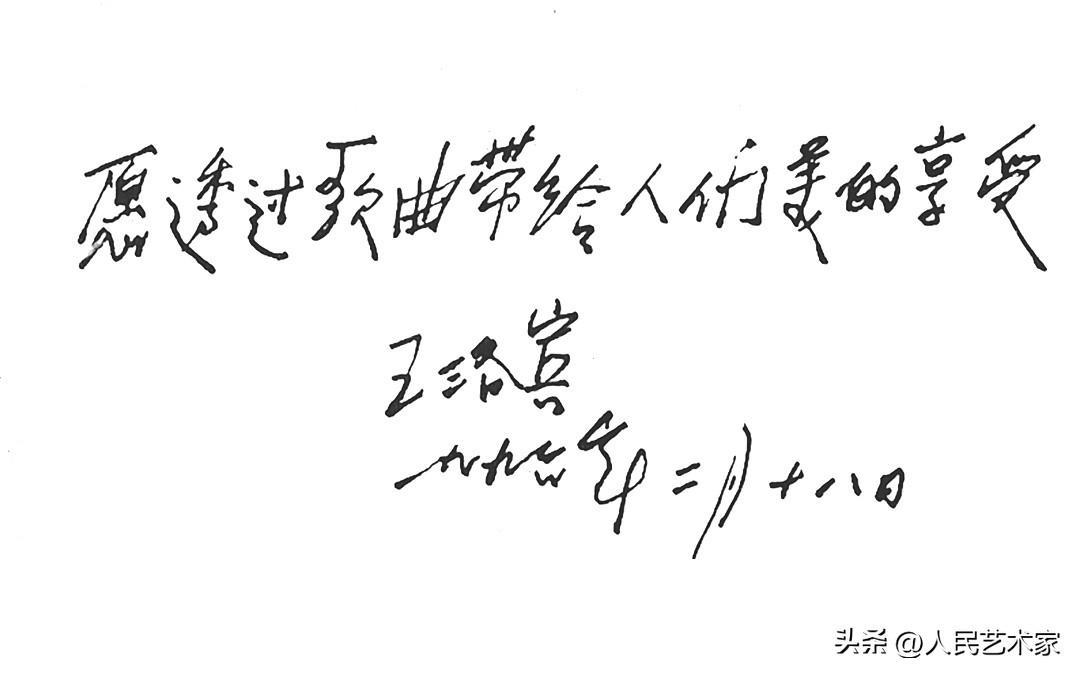 愿透过歌曲带给人们美的享受
王洛宾
一九九六年二月十八日
头条 @人民艺术家